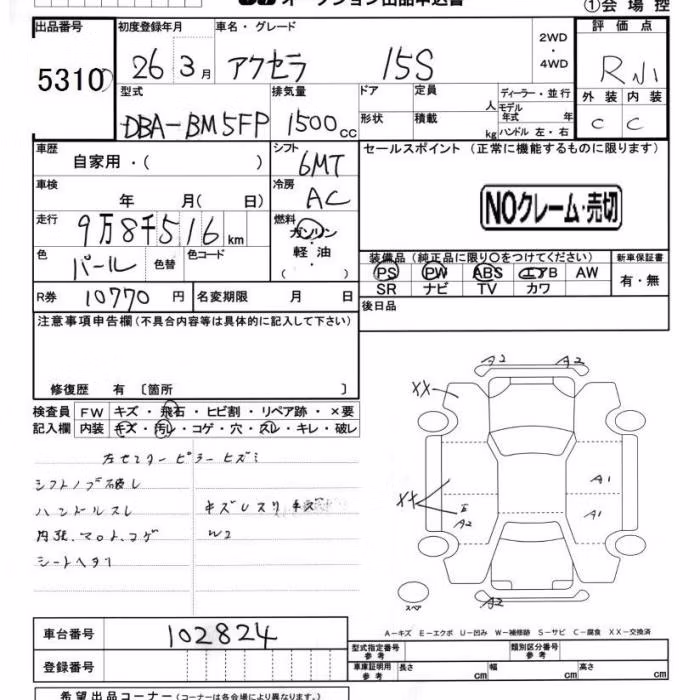 オークション出品申込書
①会場控
出品番号 初度登録年月 車名・グレード 2WD・4WD 評価点
5310 26 3月 アクセラ 15S R
外装 内装
C C
型式 排気量 ドア 定員 人 ディーラー・並行
DBA-BM5FP 1500cc 形状 積載 kg モデル年式 年
ハンドル 左・右
車歴 シフト セールスポイント(正常に機能するものに限ります)
自家用・( ) 6MT
車検 冷房
年 月( 日) AC
NOクレーム・売切
走行 燃料
9万8千516km ガソリン・軽油・( )
色 パール 色替 色コード
装備品(純正品に限り○をつけてください) 新車保証書
PS PW ABS エアB AW 有・無
SR ナビ TV カワ
R券 10770円 名変期限 月 日
後日品
注意事項申告欄(不具合内容等は具体的に記入して下さい)
修復歴 有 〔箇所 〕
検査員 FW キズ・飛石・ヒビ割・リペア跡・×要
記入欄 内装 キズ・汚レ・コゲ・穴・スレ・キレ・破レ
左センターピラーヒズミ
シフトノブ破レ
ハンドルスレ
シートヘタリ
W2
A2 A2
XX
A1
XX
A2
A1
A2
スペア
A-キズ E-エクボ U-凹み W-補修跡 S-サビ C-腐食 XX-交換済
車台番号 102824
型式指定番号 参考 類別区分番号 参考
登録番号
車庫証明用 参考 長さ cm 幅 cm 高さ cm
希望出品コーナー(コーナーは各会場により異なります。)